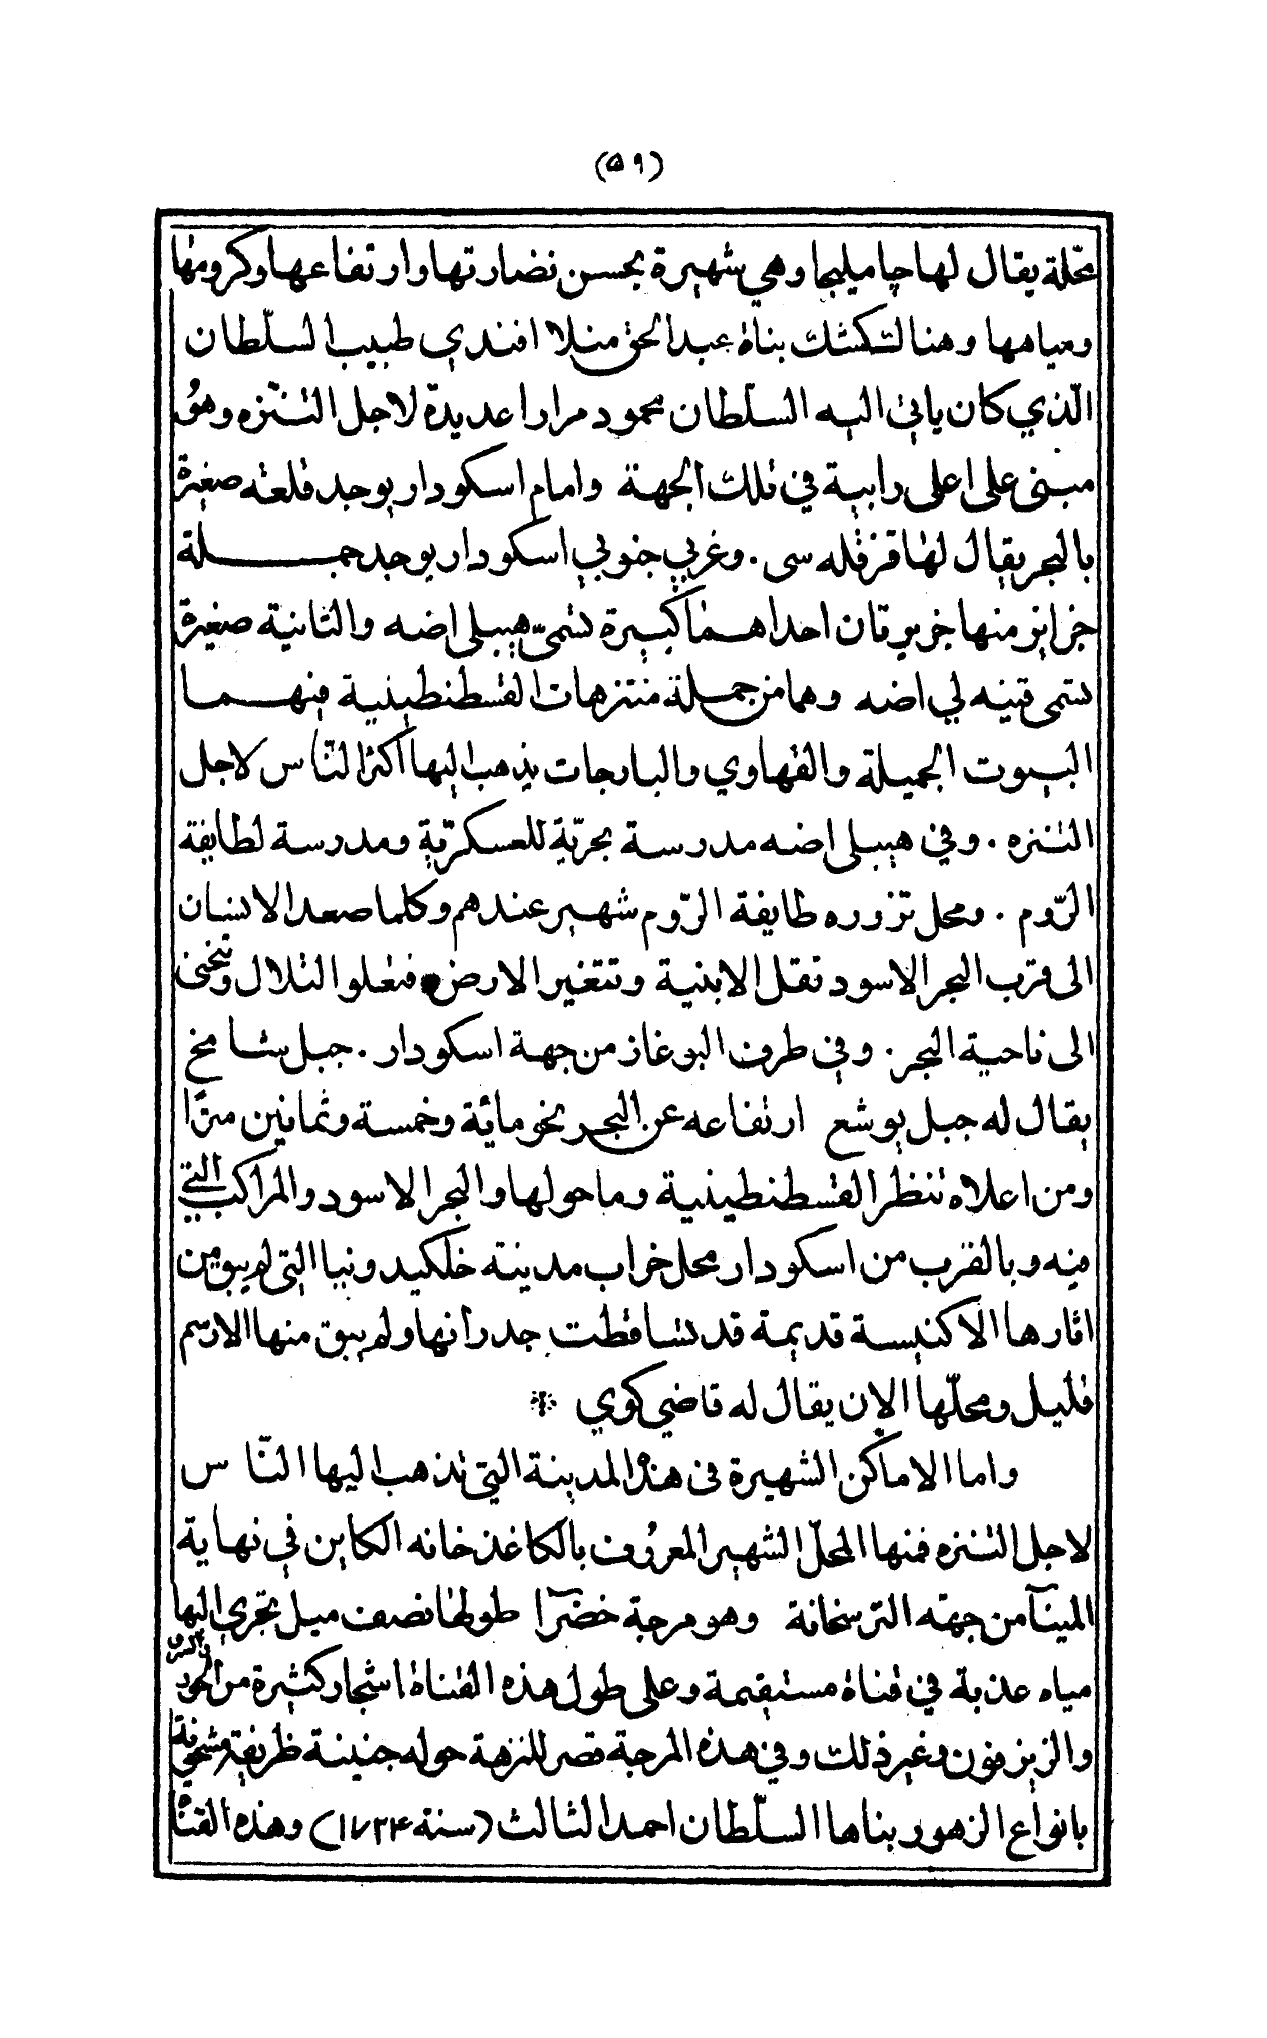 (٥٩)
محّلة يقال لها چاميليجا وهي شهيرة بحسن نضارتها وارتفاعها وكرومها
ومياهها وهنالك كشك بناهُ عبدالحق منلا افندي طبيب السلّطان
الّذي كان ياتي اليه السلّطان محمود مرارا عديدة لاجل التنّزه وهوُ
مبني على اعلى رابية في تلك الجهة وامام اسكودار يوجد قلعة صغيرة
بالبحر يقال لها قزقله سى . وغربي جنوبي اسكودار يوجد جملة
جزايز منها جزيرتان احداهما كبيرة تسمىّ هيبلى اضه والثانية صغيرة
تسمى قينه لي اضه وهما من جملة منتزهات القسطنطينية فيهما
البيوت الجميلة والقهاوي والبارجات يذهب اليها اكثر النّاس لاجل
التنزه . وفي هيبلى اضه مدرسة بحريّة للعسكريّة ومدرسة لطايفة
الرّوم . ومحل تزوره طايفة الرّوم شهير عندهم وكلما صعد الانسان
الى قرب البحر الاسود تقل الابنية وتتغير الارض فتعلوا التلال وتنحنى
الى ناحية البحر . وفي طرف البوغاز من جهة اسكودار . جبل شامخ
يقال له جبل يوشع ارتفاعه عن البحر نحو مائة وخمسة وثمانين مترًا
ومن اعلاه تنظر القسطنطينية وما حولها والبحر الاسود والمراكب التي
فيه وبالقرب من اسكودار محل خراب مدينة خلكيدونيا التي لم يبق من
اثارها الا كنيسة قديمة قد تساقطت جدرانها ولم يبق منها الا رسم
قليل ومحلّها الان يقال له قاضي كوي *
واما الاماكن الشهيرة في هذه المدينة التي تذهب اليها النّاس
لاجل التنزه فمنها المحلّ الشهير المعرُوف بالكاغد خانه الكاين في نهاية
الميناۤ من جهته الترسخانة وهو مرجة خضرۤا طولها نصف ميل تجري اليها
مياه عذبة في قناة مستقيمة وعلى طول هذه القناة اشجار كثيرة من الحور والسرو
والزيزفون وغير ذلك وفي هذه المرجة قصر للنزهة حوله جنينة ظريفة مشحونة
بانواع الزهور بناها السلّطان احمد الثالث (سنة ١٧٢٤) وهذه القناة